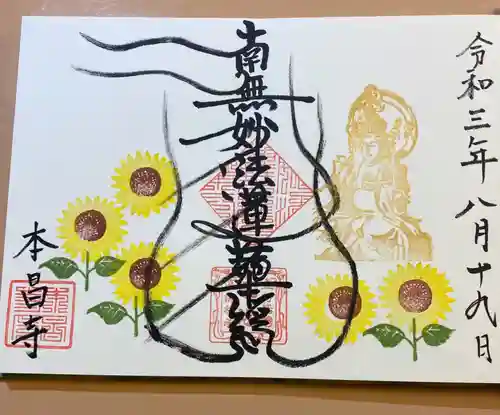 令和三年八月十九日
南無妙法蓮華経
本昌寺